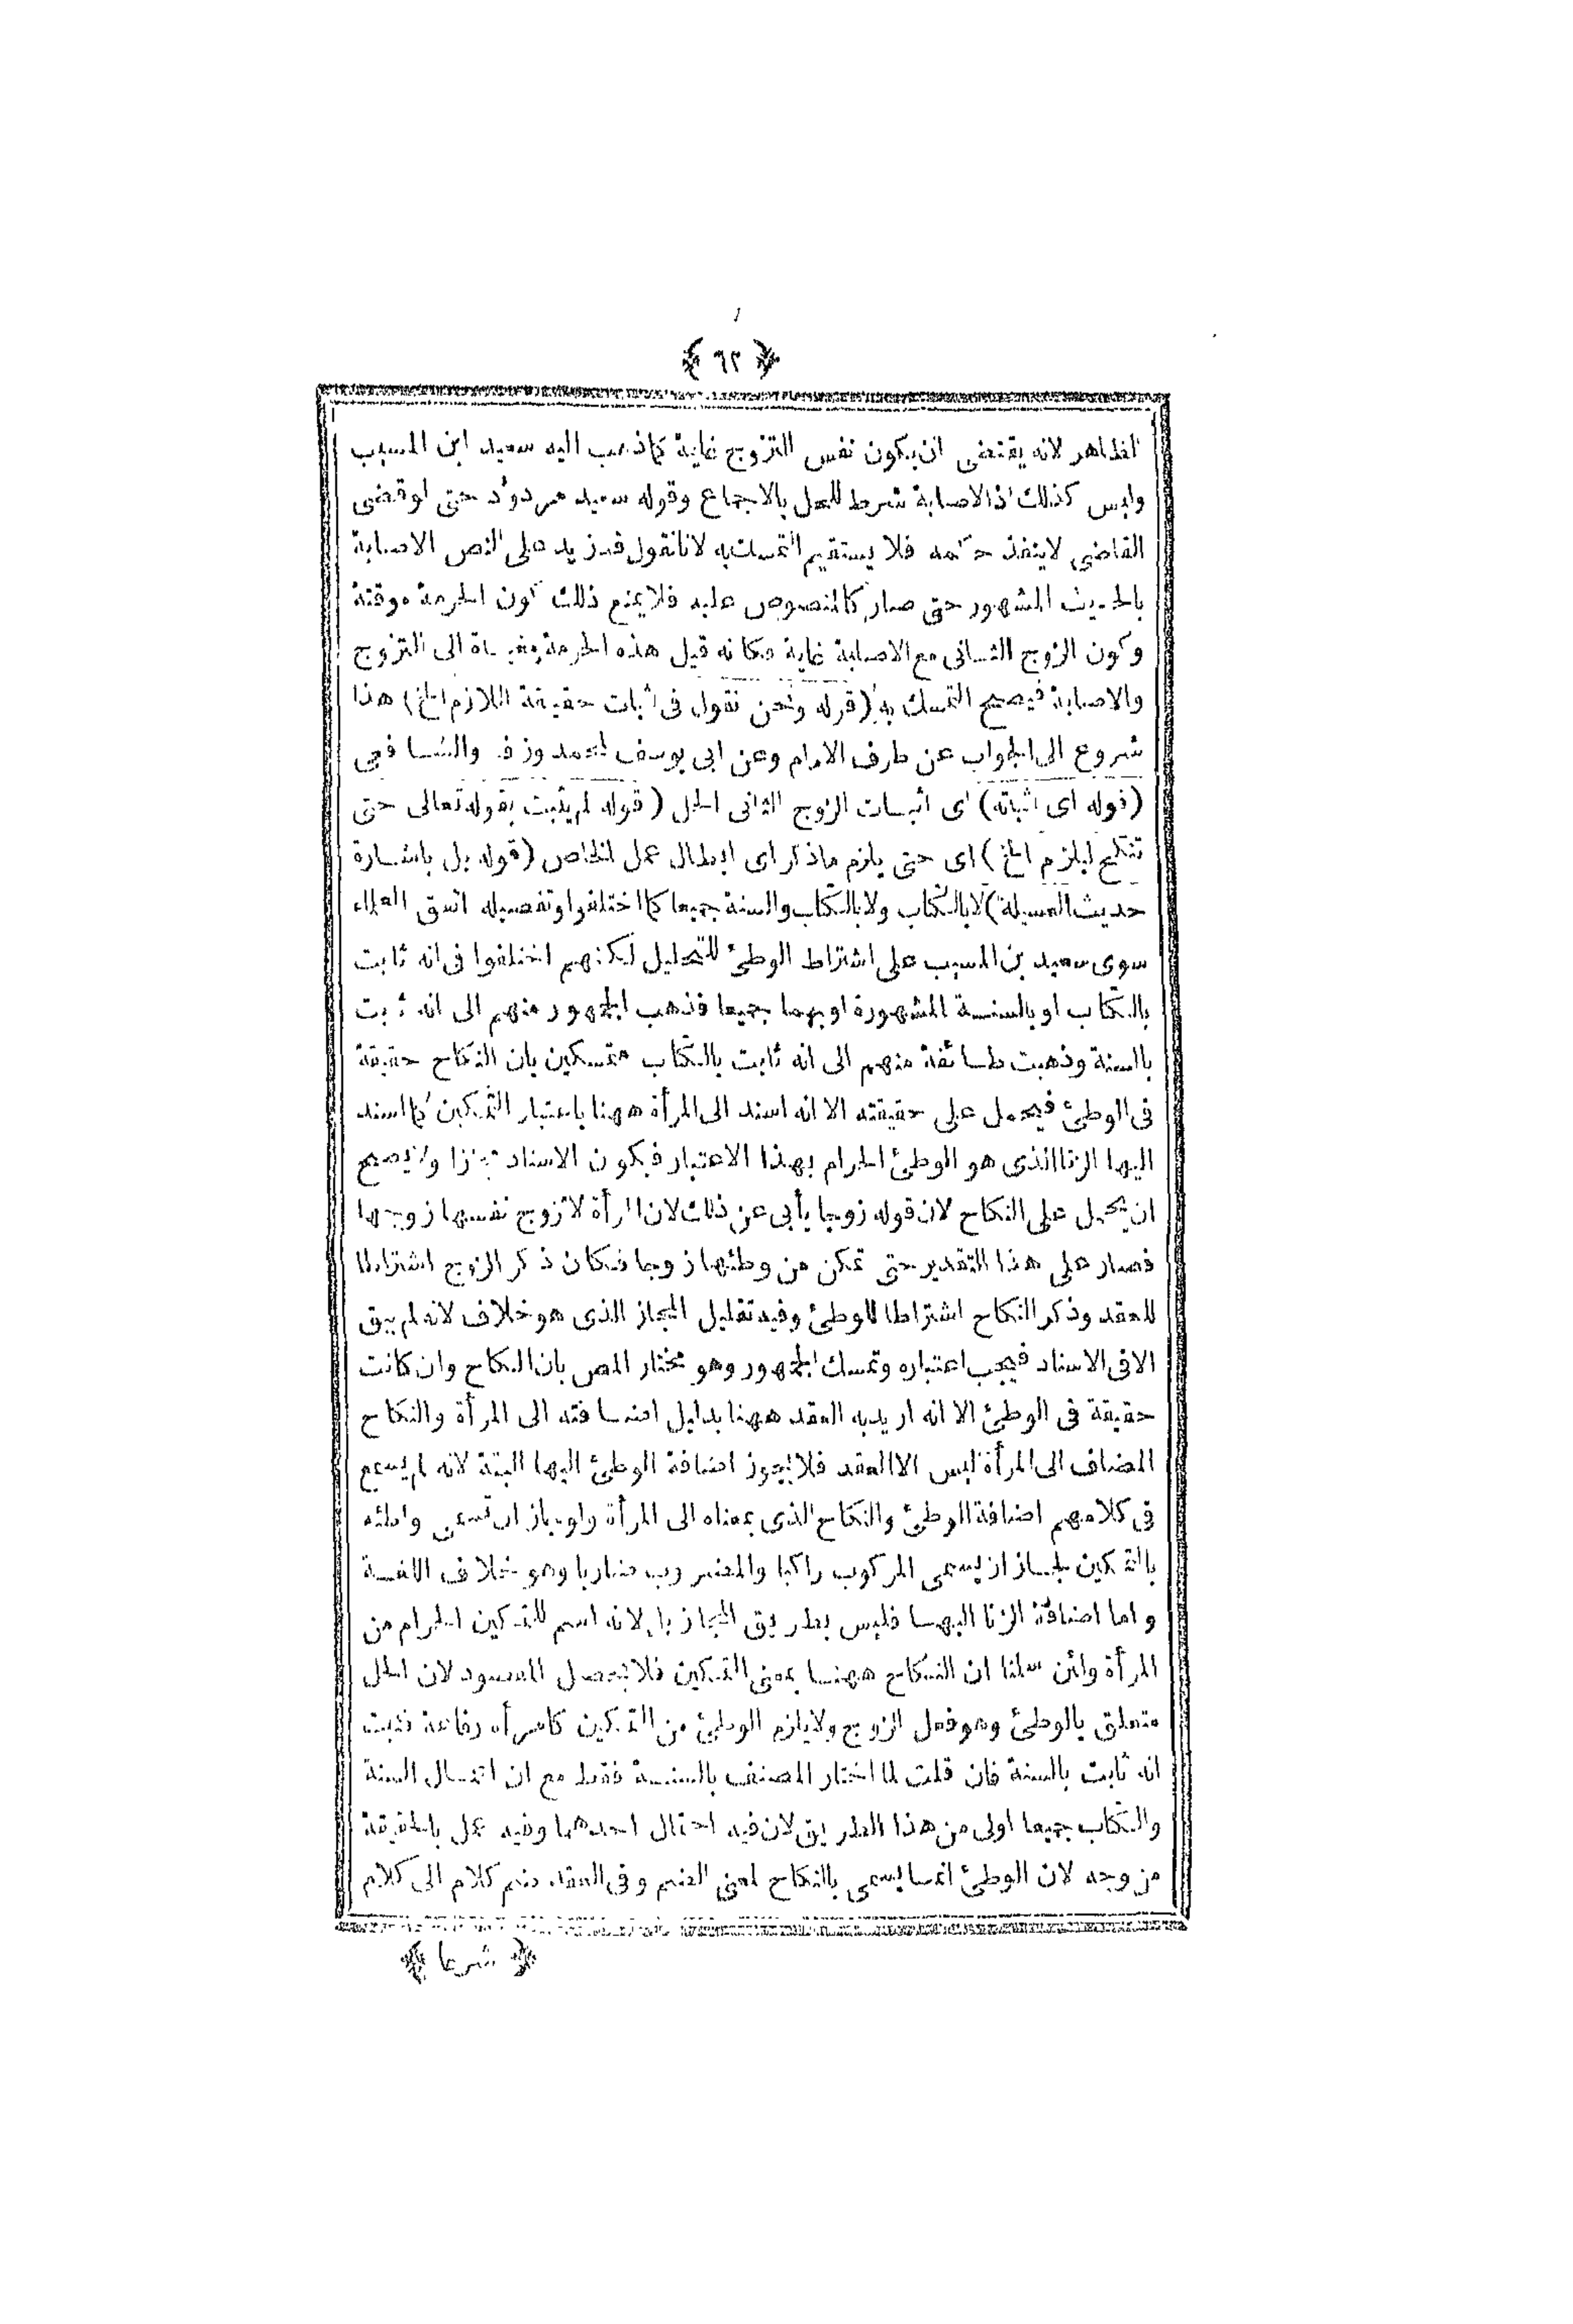 ﴿ ٦٢ ﴾
الظاهر لانه يقتضى ان يكون نفس التزوج غاية كما ذهب اليه سعيد ابن المسيب
وليس كذلك اذ الاصابة شرط للحل بالاجماع وقوله سعيد مردود حتى لو قضى
القاضى لاينفذ حكمه فلا يستقيم التمسك به لانا نقول قد زيد على النص الاصابة
بالحديث المشهور حتى صار كالمنصوص عليه فلا يمنع ذلك كون الحرمة موقتة
وكون الزوج الثانى مع الاصابة غاية فكانه قيل هذه الحرمة مغياة الى التزوج
والاصابة فيصح التمسك به (قوله ونحن نقول فى اثبات حقيقة اللازم الخ) هذا
شروع الى الجواب عن طرف الامام وعن ابى يوسف لمحمد وزفر والشافعى
(قوله اى اثباته) اى اثبات الزوج الثانى الحل (قوله لم يثبت بقوله تعالى حتى
تنكح ليلزم الخ) اى حتى يلزم ماذكر اى ابطال عمل الخاص (قوله بل باشارة
حديث العسيلة) لا بالكتاب ولا بالكتاب والسنة جميعا كما اختلفوا وتفصيله اتفق العلماء
سوى سعيد بن المسيب على اشتراط الوطئ للتحليل لكنهم اختلفوا فى انه ثابت
بالكتاب او بالسنة المشهورة او بهما جميعا فذهب الجمهور منهم الى انه ثابت
بالسنة وذهبت طائفة منهم الى انه ثابت بالكتاب متمسكين بان النكاح حقيقة
فى الوطئ فيحمل على حقيقته الا انه اسند الى المرأة ههنا باعتبار التمكين كما اسند
اليها الزنا الذى هو الوطئ الحرام بهذا الاعتبار فيكون الاسناد مجازا ولا يصح
ان يحمل على النكاح لان قوله زوجا يأبى عن ذلك لان المرأة لاتزوج نفسها زوجها
فصار على هذا التقدير حتى تمكن من وطئها زوجا فكان ذكر الزوج اشتراطا
للعقد وذكر النكاح اشتراطا للوطئ وفيه تقليل المجاز الذى هو خلاف لانه لم يبق
الا فى الاسناد فيجب اعتباره وتمسك الجمهور وهو مختار المص بان النكاح وان كانت
حقيقة فى الوطئ الا انه اريد به العقد ههنا بدليل اضافته الى المرأة والنكاح
المضاف الى المرأة ليس الا العقد فلا يجوز اضافة الوطئ اليها البتة لانه لم يسمع
فى كلامهم اضافة الوطئ والنكاح الذى بمعناه الى المرأة ولو جاز ان تسمى واطئه
بالتمكين لجاز ان يسمى المركوب راكبا والمضروب ضاربا وهو خلاف اللغة
واما اضافة الزنا اليها فليس بطريق المجاز بل لانه اسم للتمكين الحرام من
المرأة ولئن سلمنا ان النكاح ههنا بمعنى التمكين فلا يحصل المقصود لان الحل
متعلق بالوطئ وهو فعل الزوج ولا يلزم الوطئ من التمكين كامرأة رفاعة فثبت
انه ثابت بالسنة فان قلت لما اختار المصنف بالسنة فقط مع ان اتصال السنة
والكتاب جميعا اولى من هذا الطريق لان فيه احتمال احدهما وفيه عمل بالحقيقة
من وجه لان الوطئ انما يسمى بالنكاح لمعنى الضم وفى العقد ضم كلام الى كلام
﴿ شرعا ﴾